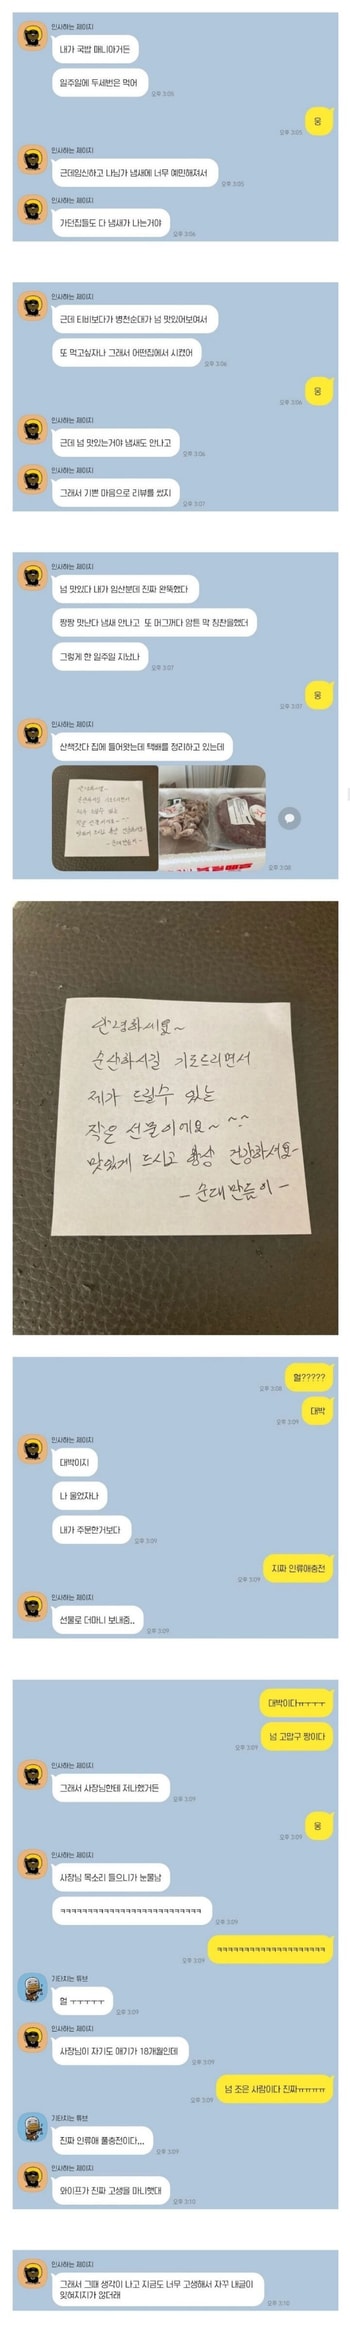 인사하는 제이지
내가 국밥 매니아거든
일주일에 두세번은 먹어
오후 3:05
웅
오후 3:05
인사하는 제이지
근데임신하고 나님가 냄새에 너무 예민해져서
오후 3:05
인사하는 제이지
가던집들도 다 냄새가 나는거야
오후 3:06
인사하는 제이지
근데 티비보다가 병천순대가 넘 맛있어보여서
또 먹고싶자나 그래서 어떤집에서 시켰어
오후 3:06
웅
오후 3:06
인사하는 제이지
근데 넘 맛있는거야 냄새도 안나고
오후 3:06
인사하는 제이지
그래서 기쁜 마음으로 리뷰를 썼지
오후 3:07
인사하는 제이지
넘 맛있다 내가 임산분데 진짜 완뚝했다
짱짱 맛난다 냄새 안나고 또 머그꺼다 암튼 막 칭찬을했더
그렇게 한 일주일 지났나
오후 3:07
웅
오후 3:07
인사하는 제이지
산책갔다 집에 들어왔는데 택배를 정리하고 있는데
안녕하세요~
순산하시길 기도드리면서
제가 드릴수 있는
작은 선물이에요~ ^^
맛있게 드시고 항상 건강하세요~
- 순대만듬이 -
오후 3:08
안녕하세요~
순산하시길 기도드리면서
제가 드릴수 있는
작은 선물이에요~ ^^
맛있게 드시고 항상 건강하세요~
- 순대만듬이 -
헐?????
오후 3:08
대박
오후 3:09
인사하는 제이지
대박이지
나 울었자나
내가 주문한거보다
오후 3:09
지짜 인류애충전
오후 3:09
인사하는 제이지
선물로 더마니 보내줌..
오후 3:09
대박이다ㅠㅜㅜㅜ
넘 고맙구 짱이다
오후 3:09
인사하는 제이지
그래서 사장님한테 저나했거든
오후 3:09
웅
오후 3:09
인사하는 제이지
사장님 목소리 들으니가 눈물남
ㅋㅋㅋㅋㅋㅋㅋㅋㅋㅋㅋㅋㅋㅋㅋㅋㅋㅋㅋㅋㅋㅋㅋㅋㅋㅋ
오후 3:09
ㅋㅋㅋㅋㅋㅋㅋㅋㅋㅋㅋㅋㅋㅋㅋㅋㅋㅋㅋㅋ
오후 3:09
기타치는 튜브
헐 ㅜㅜㅜㅜㅜ
오후 3:09
인사하는 제이지
사장님이 자기도 애기가 18개월인데
오후 3:09
넘 조은 사람이다 진짜ㅠㅠㅠㅠ
오후 3:09
기타치는 튜브
진짜 인류애 풀충전이다,,,
오후 3:09
인사하는 제이지
와이프가 진짜 고생을 마니했대
오후 3:10
인사하는 제이지
그래서 그때 생각이 나고 지금도 너무 고생해서 자꾸 내글이
잊혀지지가 않더래
오후 3:10